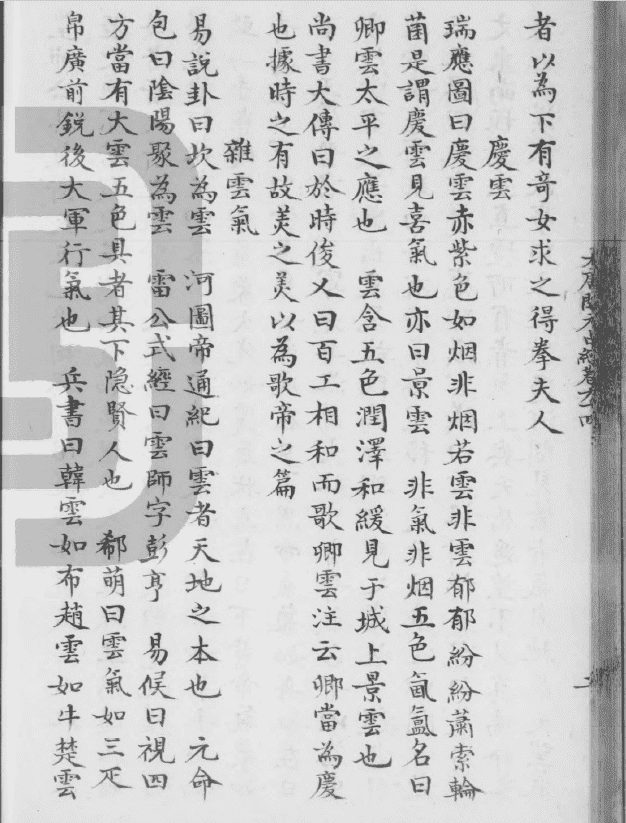 者以為下有奇女求之得拳夫人
慶雲
瑞應圖曰慶雲赤紫色如烟非烟若雲非雲郁郁紛紛蕭索輪
菌是謂慶雲見喜氣也亦曰景雲　非氣非烟五色氤氳名曰
卿雲太平之應也　雲含五色潤澤和緩見于城上景雲也
尚書大傳曰於時俊乂曰百工相和而歌卿雲注云卿當為慶
也據時之有故美之美以為歌帝之篇
雜雲氣
易說卦曰坎為雲　河圖帝通紀曰雲者天地之本也　元命
包曰陰陽聚為雲　雷公式經曰雲師字彭亨　易候曰視四
方當有大雲五色具者其下隐賢人也　郗萌曰雲氣如三疋
帛廣前鋭後大軍行氣也　兵書曰韓雲如布趙雲如牛楚雲